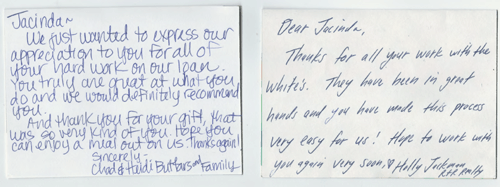 Jacinda~
We just wanted to express our
appreciation to you for all of
your hard work on our loan.
You truly are great at what you
do and we would definitely recommend
you.
And thank you for your gift, that
was so very kind of you. Hope you
can enjoy a meal out on us. Thanks again!
Sincerely-
Chad & Heidi and Family
Dear Jacinda,
Thanks for all your work with the
White's. They have been in great
hands and you have made this process
very easy for us! Hope to work with
you again very soon. ♡ Holly
Realty